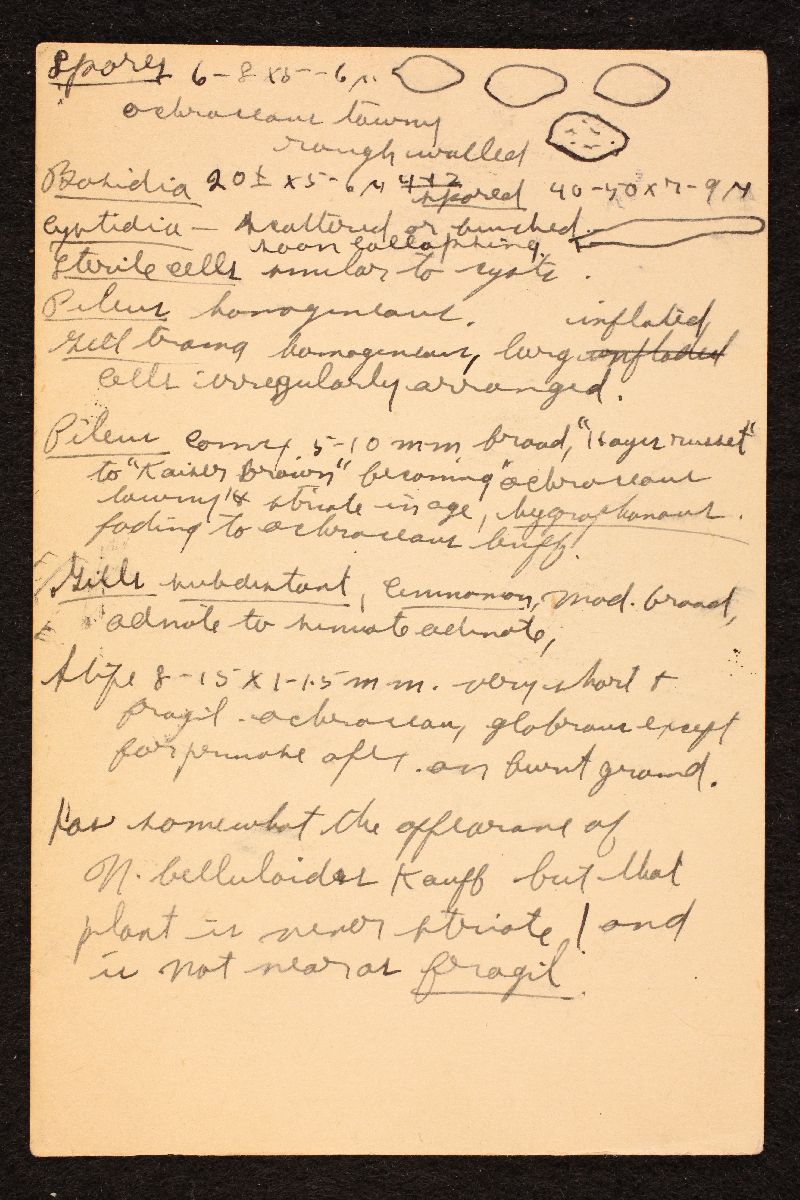 Spores 6-8 x 5-6 µ.
ochraceous tawny
rough walled
Basidia 20± x 5-6 µ 4+2 spored 40-50 x 7-9 µ
Cystidia - scattered or bunched.
soon collapshing.
Sterile cells similar to cysts.
Pileus homogeneous.
Gill trama homogeneous, large inflated
cells irregularly arranged.
Pileus convex, 5-10 mm broad, "Hays russet"
to "Kaiser Brown" becoming "ochraceous
tawny" & striate in age, hygrophanous.
fading to ochraceous buff.
Gills subdistant, Cinnamon, mod. broad,
adnate to sinuate adnate,
Stipe 8-15 x 1-1.5 mm. very short +
fragil. ochraceous, glabrous except
for pruinose apex. on burnt ground.
Has somewhat the appearance of
N. belluloides Kauff but that
plant is never striate! and
is not near as fragil.